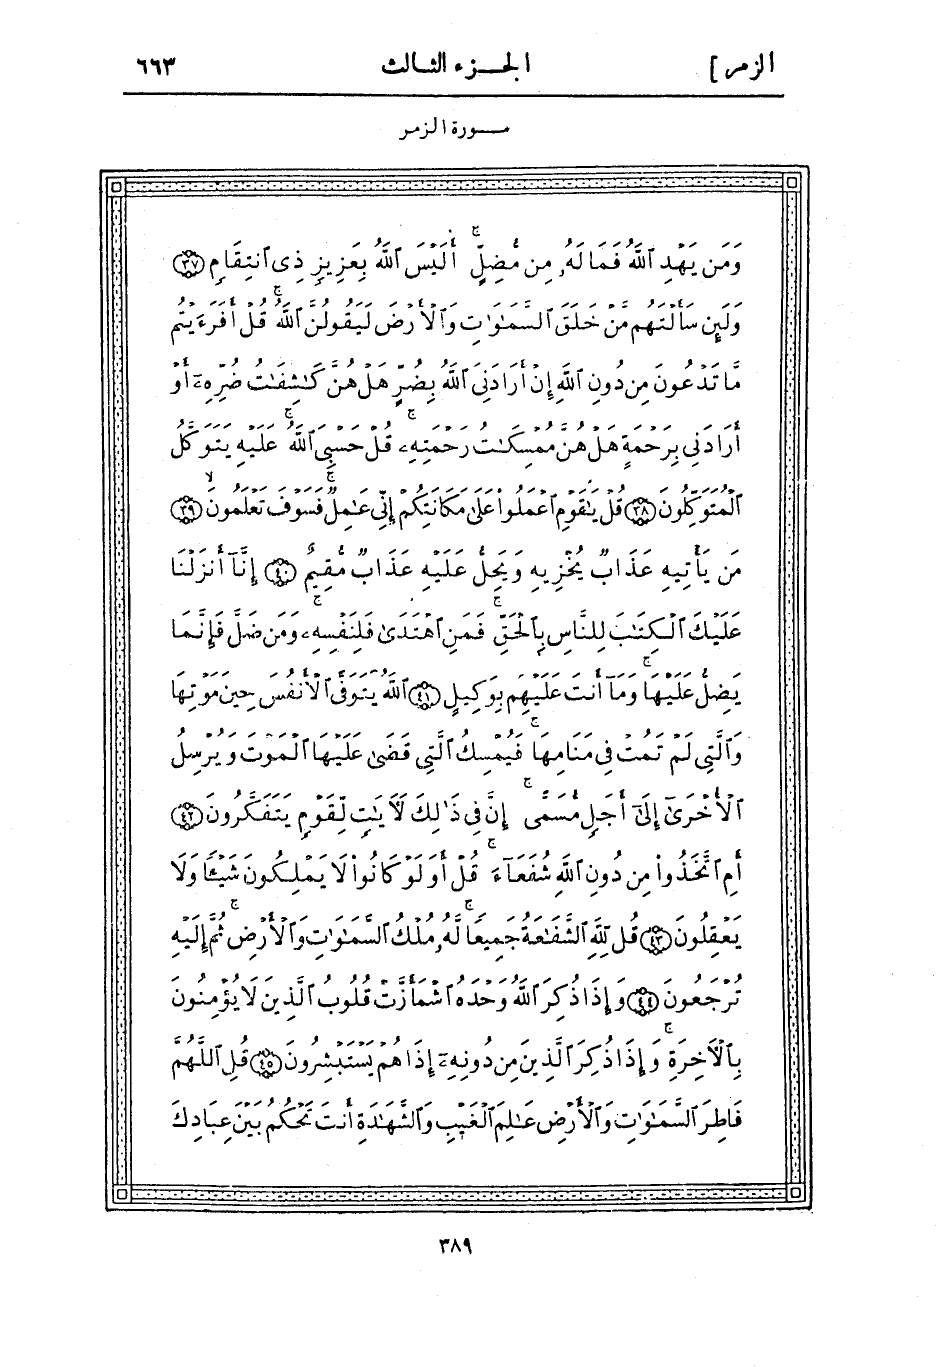 الزمر ] الجزء الثالث ٦٦٣
سورة الزمر
وَمَن يَهْدِ ٱللَّهُ فَمَا لَهُۥ مِن مُّضِلٍّ ۗ أَلَيْسَ ٱللَّهُ بِعَزِيزٍ ذِى ٱنتِقَامٍ ﴿٣٧﴾
وَلَئِن سَأَلْتَهُم مَّنْ خَلَقَ ٱلسَّمَٰوَٰتِ وَٱلْأَرْضَ لَيَقُولُنَّ ٱللَّهُ ۚ قُلْ أَفَرَءَيْتُم
مَّا تَدْعُونَ مِن دُونِ ٱللَّهِ إِنْ أَرَادَنِىَ ٱللَّهُ بِضُرٍّ هَلْ هُنَّ كَٰشِفَٰتُ ضُرِّهِۦٓ أَوْ
أَرَادَنِى بِرَحْمَةٍ هَلْ هُنَّ مُمْسِكَٰتُ رَحْمَتِهِۦ ۚ قُلْ حَسْبِىَ ٱللَّهُ ۖ عَلَيْهِ يَتَوَكَّلُ
ٱلْمُتَوَكِّلُونَ ﴿٣٨﴾ قُلْ يَٰقَوْمِ ٱعْمَلُوا۟ عَلَىٰ مَكَانَتِكُمْ إِنِّى عَٰمِلٌ ۖ فَسَوْفَ تَعْلَمُونَ ﴿٣٩﴾
مَن يَأْتِيهِ عَذَابٌ يُخْزِيهِ وَيَحِلُّ عَلَيْهِ عَذَابٌ مُّقِيمٌ ﴿٤٠﴾ إِنَّآ أَنزَلْنَا
عَلَيْكَ ٱلْكِتَٰبَ لِلنَّاسِ بِٱلْحَقِّ ۖ فَمَنِ ٱهْتَدَىٰ فَلِنَفْسِهِۦ ۖ وَمَن ضَلَّ فَإِنَّمَا
يَضِلُّ عَلَيْهَا ۖ وَمَآ أَنتَ عَلَيْهِم بِوَكِيلٍ ﴿٤١﴾ ٱللَّهُ يَتَوَفَّى ٱلْأَنفُسَ حِينَ مَوْتِهَا
وَٱلَّتِى لَمْ تَمُتْ فِى مَنَامِهَا ۖ فَيُمْسِكُ ٱلَّتِى قَضَىٰ عَلَيْهَا ٱلْمَوْتَ وَيُرْسِلُ
ٱلْأُخْرَىٰٓ إِلَىٰٓ أَجَلٍ مُّسَمًّى ۚ إِنَّ فِى ذَٰلِكَ لَأَيَٰتٍ لِّقَوْمٍ يَتَفَكَّرُونَ ﴿٤٢﴾
أَمِ ٱتَّخَذُوا۟ مِن دُونِ ٱللَّهِ شُفَعَآءَ ۚ قُلْ أَوَلَوْ كَانُوا۟ لَا يَمْلِكُونَ شَيْـًٔا وَلَا
يَعْقِلُونَ ﴿٤٣﴾ قُل لِّلَّهِ ٱلشَّفَٰعَةُ جَمِيعًا ۖ لَّهُۥ مُلْكُ ٱلسَّمَٰوَٰتِ وَٱلْأَرْضِ ۖ ثُمَّ إِلَيْهِ
تُرْجَعُونَ ﴿٤٤﴾ وَإِذَا ذُكِرَ ٱللَّهُ وَحْدَهُ ٱشْمَأَزَّتْ قُلُوبُ ٱلَّذِينَ لَا يُؤْمِنُونَ
بِٱلْأَخِرَةِ ۖ وَإِذَا ذُكِرَ ٱلَّذِينَ مِن دُونِهِۦٓ إِذَا هُمْ يَسْتَبْشِرُونَ ﴿٤٥﴾ قُلِ ٱللَّهُمَّ
فَاطِرَ ٱلسَّمَٰوَٰتِ وَٱلْأَرْضِ عَٰلِمَ ٱلْغَيْبِ وَٱلشَّهَٰدَةِ أَنتَ تَحْكُمُ بَيْنَ عِبَادِكَ
٣٨٩